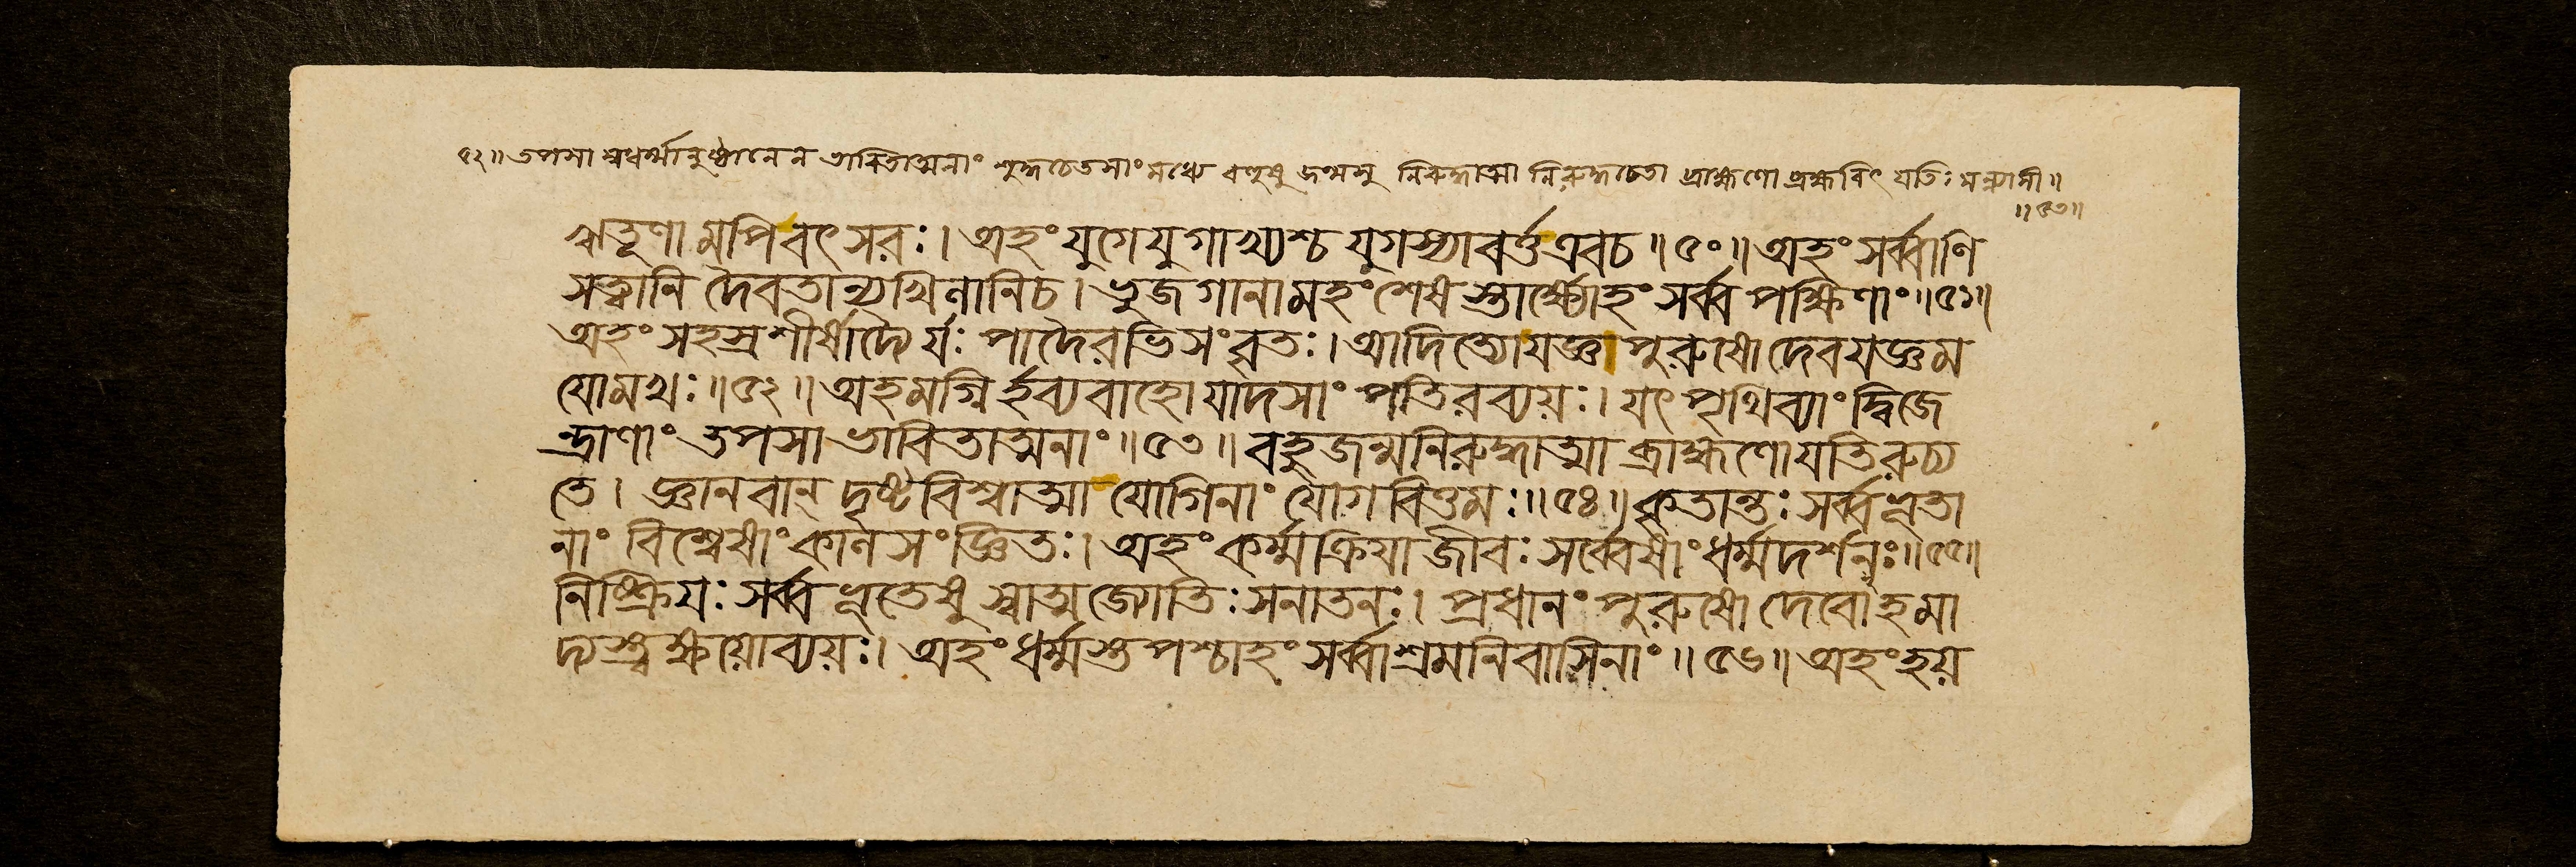 ৫২॥ তপসা স্বধর্ম্মানুষ্ঠানেন ভাবিতাত্মনাং শুদ্ধচেতসাং মধ্যে বহুষু জন্মসু নিরুদ্ধাত্মা নিরুদ্ধচেতা ব্রাহ্মণো ব্রহ্মবিৎ যতিঃ সন্ন্যাসী॥
॥৫৩॥
ঋতূণামপিবৎসরঃ। অহংযুগেযুগাখ্যশ্চ যুগস্যাবর্ত্তএবচ॥৫০॥ অহংসর্ব্বাণি
সত্ত্বানি দৈবতান্যখিলানিচ। ভুজগানামহংশেষস্তার্ক্ষ্যোহংসর্ব্বপক্ষিণাং॥৫১॥
অহংসহস্রশীর্ষাদ্যৈর্যঃ পাদৈরভিসংবৃতঃ। আদিত্যোযজ্ঞপুরুষোদেবযজ্ঞম
যোমখঃ॥৫২॥ অহমগ্নির্হব্যবাহোযাদসাং পতিরব্যয়ঃ। যৎপৃথিব্যাংদ্বিজে
ন্দ্রাণাং তপসাভাবিতাত্মনাং॥৫৩॥ বহুজন্মনিরুদ্ধাত্মা ব্রাহ্মণোযতিরুচ্য
তে। জ্ঞানবান্ দৃষ্টবিশ্বাত্মা যোগিনাং যোগবিত্তমঃ॥৫৪॥ কৃতান্তঃসর্ব্বভূতা
নাং বিশ্বেষাংকালসংজ্ঞিতঃ। অহংকর্ম্মক্রিযাজীবঃ সর্ব্বেষাংধর্ম্মদর্শনঃ॥৫৫॥
নিষ্ক্রিযঃ সর্ব্বভূতেষু স্বাত্মজ্যোতিঃসনাতনঃ। প্রধানংপুরুষোদেবোহমা
দ্যস্ত্বক্ষয়োব্যয়ঃ। অহংধর্ম্মস্তপশ্চাহং সর্ব্বাশ্রমনিবাসিনাং॥৫৬॥ অহংহয়